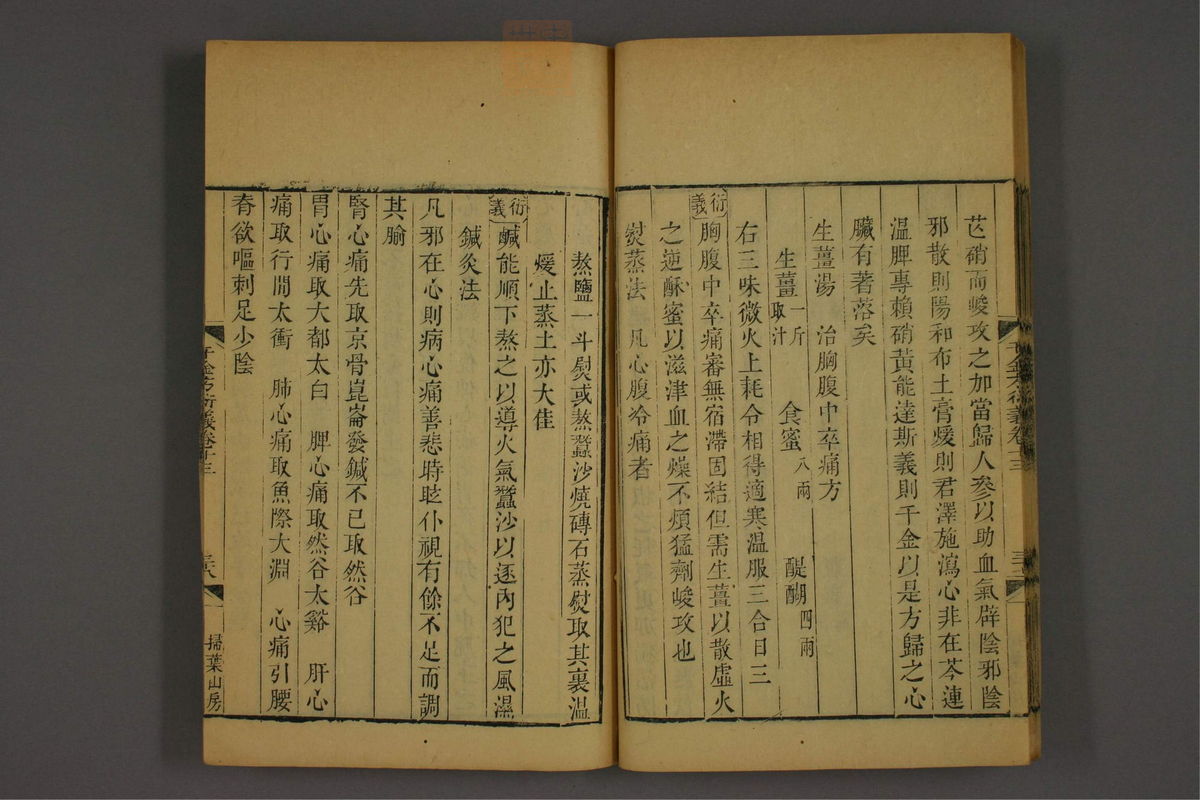 芒硝而峻攻之加當歸人參以助血氣辟陰邪陰
邪散則陽和布土膏煖則君澤施瀉心非在芩連
溫脾專賴硝黃能達斯義則千金以是方歸之心
臟有著落矣
生薑湯　治胸腹中卒痛方
生薑一斤取汁　食蜜八兩　醍醐四兩
右三味微火上耗令相得適寒溫服三合日三
衍義胸腹中卒痛審無宿滯固結但需生薑以散虛火
之逆酥蜜以滋津血之燥不煩猛劑峻攻也
熨蒸法　凡心腹冷痛者
熬鹽一斗熨或熬蠶沙燒磚石蒸熨取其裏溫
煖止蒸土亦大佳
衍義鹹能順下熬之以導火氣蠶沙以逐內犯之風濕
鍼灸法
凡邪在心則病心痛善悲時眩仆視有餘不足而調
其腧
腎心痛先取京骨崑崙發鍼不已取然谷
胃心痛取大都太白　脾心痛取然谷太谿　肝心
痛取行間太衝　肺心痛取魚際大淵　心痛引腰
脊欲嘔刺足少陰
千金方衍義卷十三
三六
掃葉山房